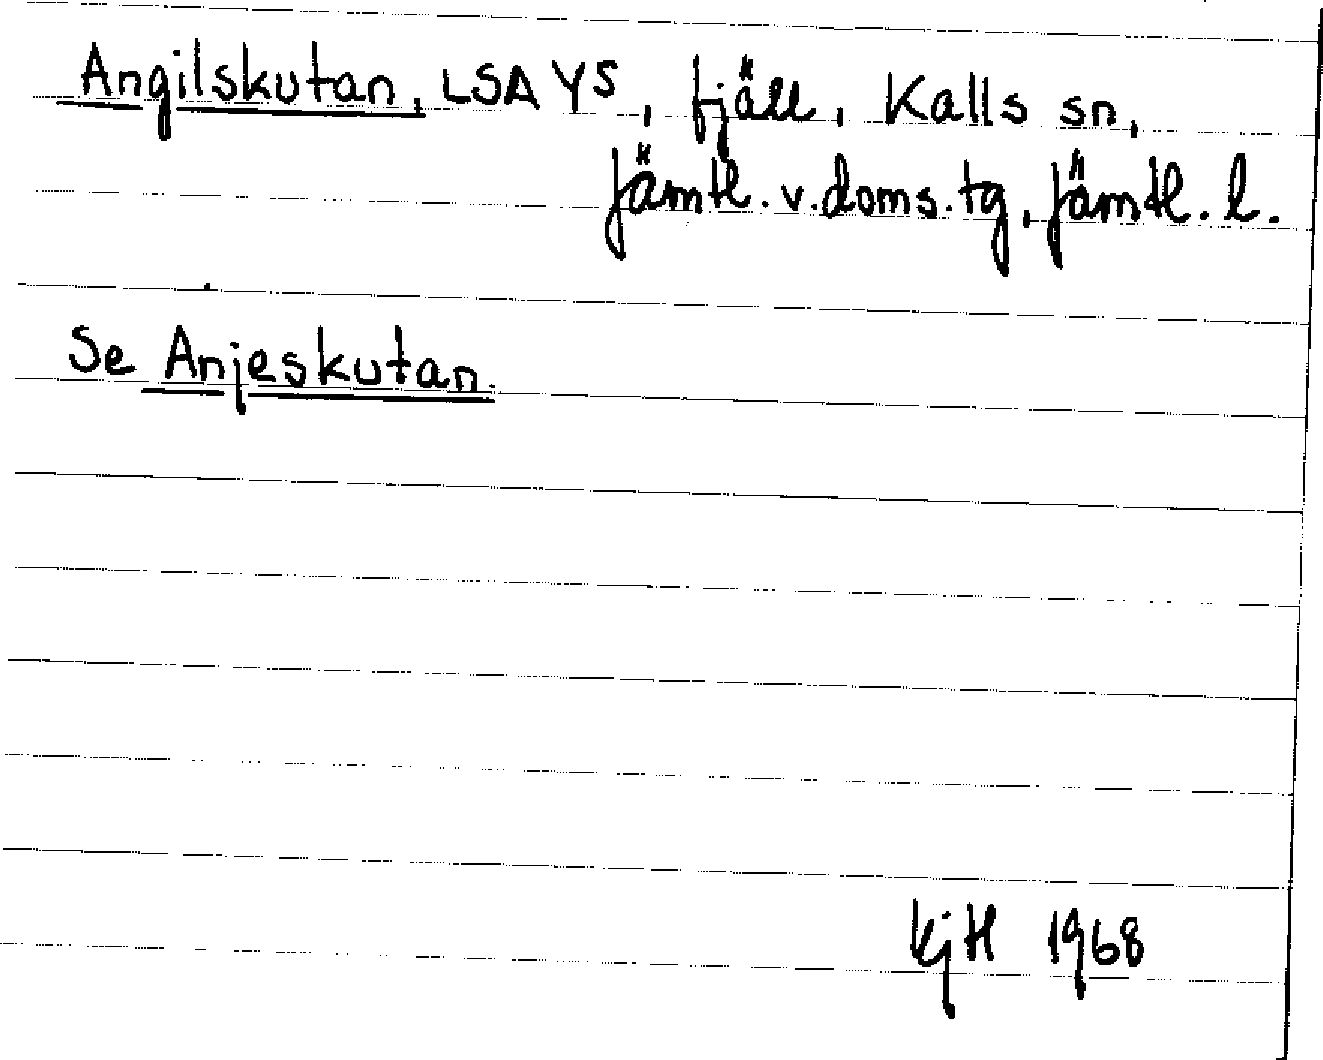 Angilskutan, LSA YS, fjäll, Kalls sn,
Jämtl. v. doms. tg, Jämtl. l.
Se Anjeskutan.
KjH 1968